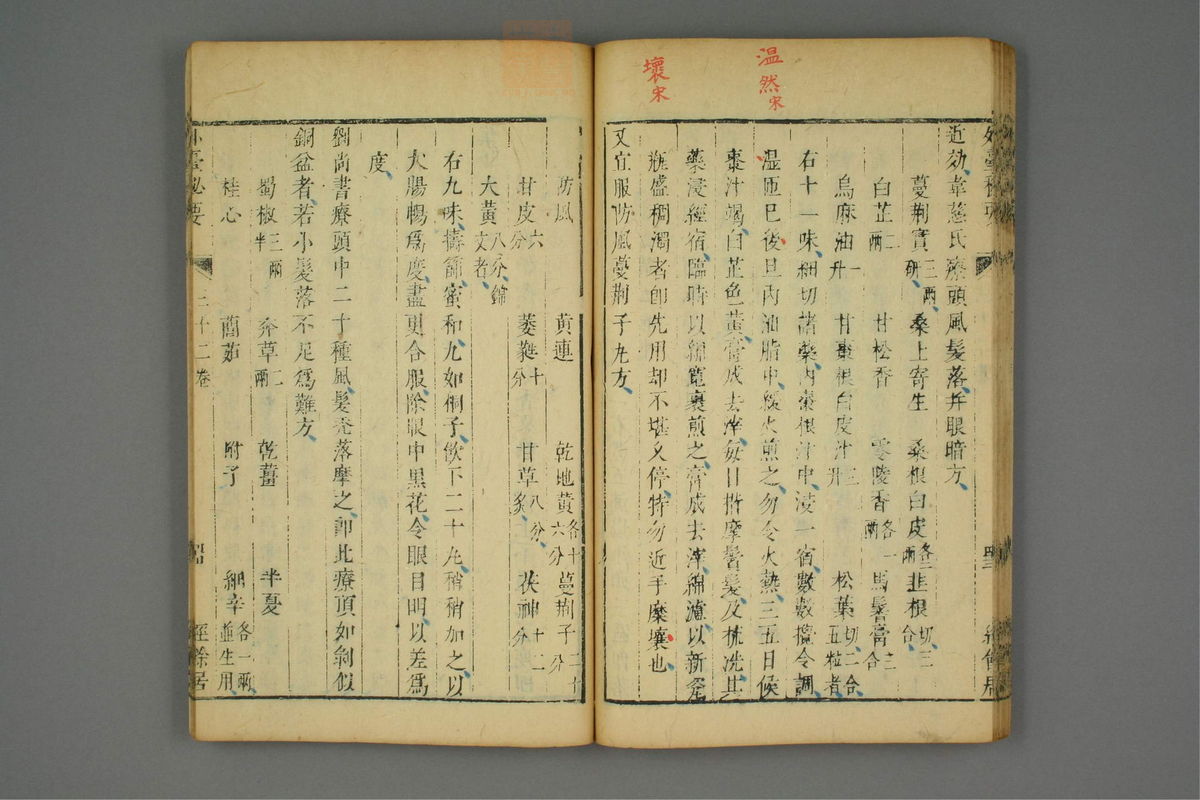 温然宋
壞宋
近効韋慈氏療頭風髮落并眼暗方
蔓荆實三兩研 桑上寄生 桑根白皮各二兩 韭根切三合
白芷二兩 甘松香 零陵香各一兩 馬鬐膏三合
烏麻油一升 甘棗根白皮汁三升 松葉切二合五粒者
右十一味細切諸藥内棗根汁中浸一宿數數攪令調
湿匝巳後旦内油脂中緩火煎之勿令火熱三五日候
棗汁竭白芷色黄膏成去滓每日揩摩鬢髮及梳洗其
藥浸經宿臨時以綿寬裹煎之膏成去滓綿濾以新瓷
瓶盛稠濁者卽先用却不堪久停特勿近手糜壤也
又宜服防風蔓荆子丸方
防風 黄連 乾地黄各十六分 蔓荆子二十分
甘皮六分 萎蕤十分 甘草八分炙 茯神十二分
大黄八分錦文者
右九味擣篩蜜和丸如桐子飲下二十丸稍稍加之以
大腸暢爲度盡更合服除眼中黒花令眼目明以差爲
度
劉尚書療頭中二十種風髮禿落摩之卽此療頂如剝似
銅盆者若小髮落不足爲難方
蜀椒三兩半 莽草二兩 乾薑 半夏
桂心 䕡茹 附子 細辛各一兩並生用
外臺秘要 三十二卷 經餘居